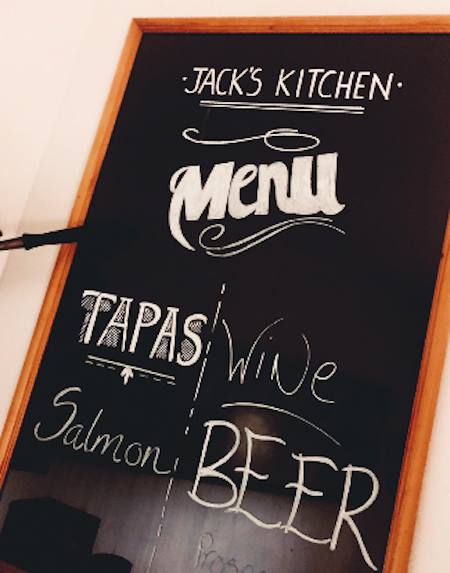 ·JACK'S KITCHEN·
Menu
TAPAS
Salmon
Wine
BEER